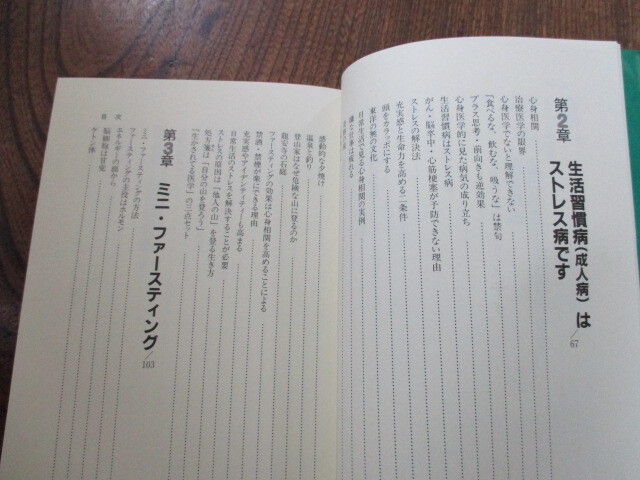 第2章 生活習慣病(成人病)は
ストレス病です/67
心身相関
治療医学の限界
心身医学でないと理解できない
「食べるな、飲むな、吸うな」は禁句
プラス思考・前向きも逆効果
心身医学的に見た病気の成り立ち
生活習慣病はストレス病
がん・脳卒中・心筋梗塞が予防できない理由
ストレスの解決法
充実感と生命力を高める二条件
頭をカラッポにする
東洋の無の文化
日常生活で見る心身相関の実例
感動的な夕焼け
温泉と釣り
登山家はなぜ危険な山に登るのか
龍安寺の石庭
ファースティングの効果は心身相関を高めることによる
禁酒・禁煙が楽にできる理由
充実感やアイデンティティーも高まる
日常生活のストレスを解決することが必要
ストレスの原因は「他人の山」を登る生き方
処方箋は「自分の山を登ろう」
「生かされてる医学」の三点セット
第3章 ミニ・ファースティング/103
ミニ・ファースティングの方法
ファースティングの主役はホルモン
エネルギーの面から
脳細胞は甘党
ケトン体
目 次